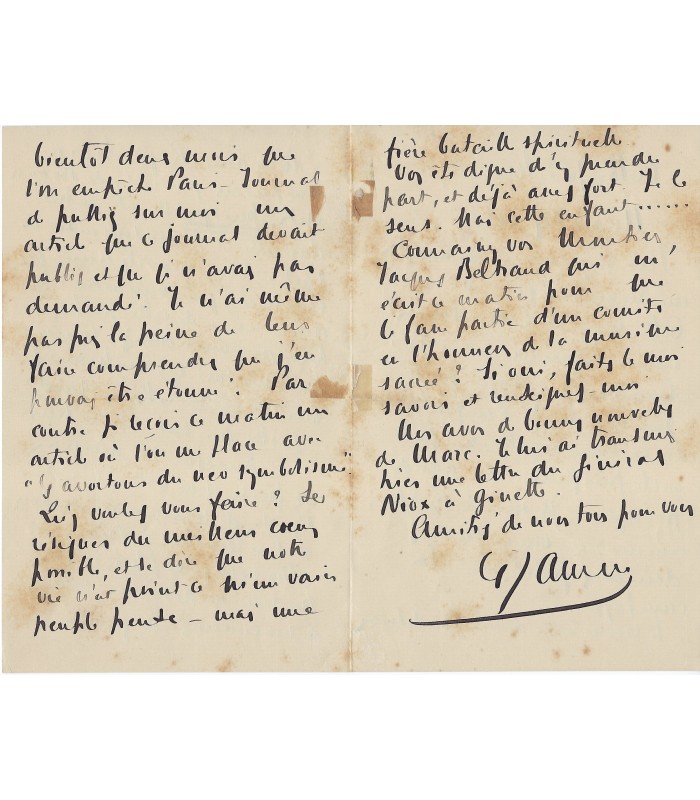 bientôt deux mois que
l'on empêche Paris-Journal
de publier sur moi un
article que ce journal devait
publier et que je n'avais pas
demandé. Je n'ai même
pas pris la peine de leur
faire comprendre que j'en
pouvais être étonné. Par
contre je reçois ce matin un
article où l'on me place avec
"les avortons du neo symbolisme".
Qu'y voulez vous faire? Se
résigner du meilleur coeur
possible, et se dire que notre
vie n'est point ce qu'un vain
peuple pense — mais une
fière bataille spirituelle
Vous êtes digne d'y prendre
part, et déjà assez fort. Je le
sens. Mais cette enfant......
Connaissez vous Monsieur
Jacques Beltrand qui m'
écrit ce matin pour que
je fasse partie d'un comité
en l'honneur de la musique
sacrée? Si oui, faites le moi
savoir et renseignez-moi
Nous avons de bonnes nouvelles
de Marc. Je lui ai transmis
hier une lettre du général
Niox à Ginette.
Amitiés de nous tous pour vous